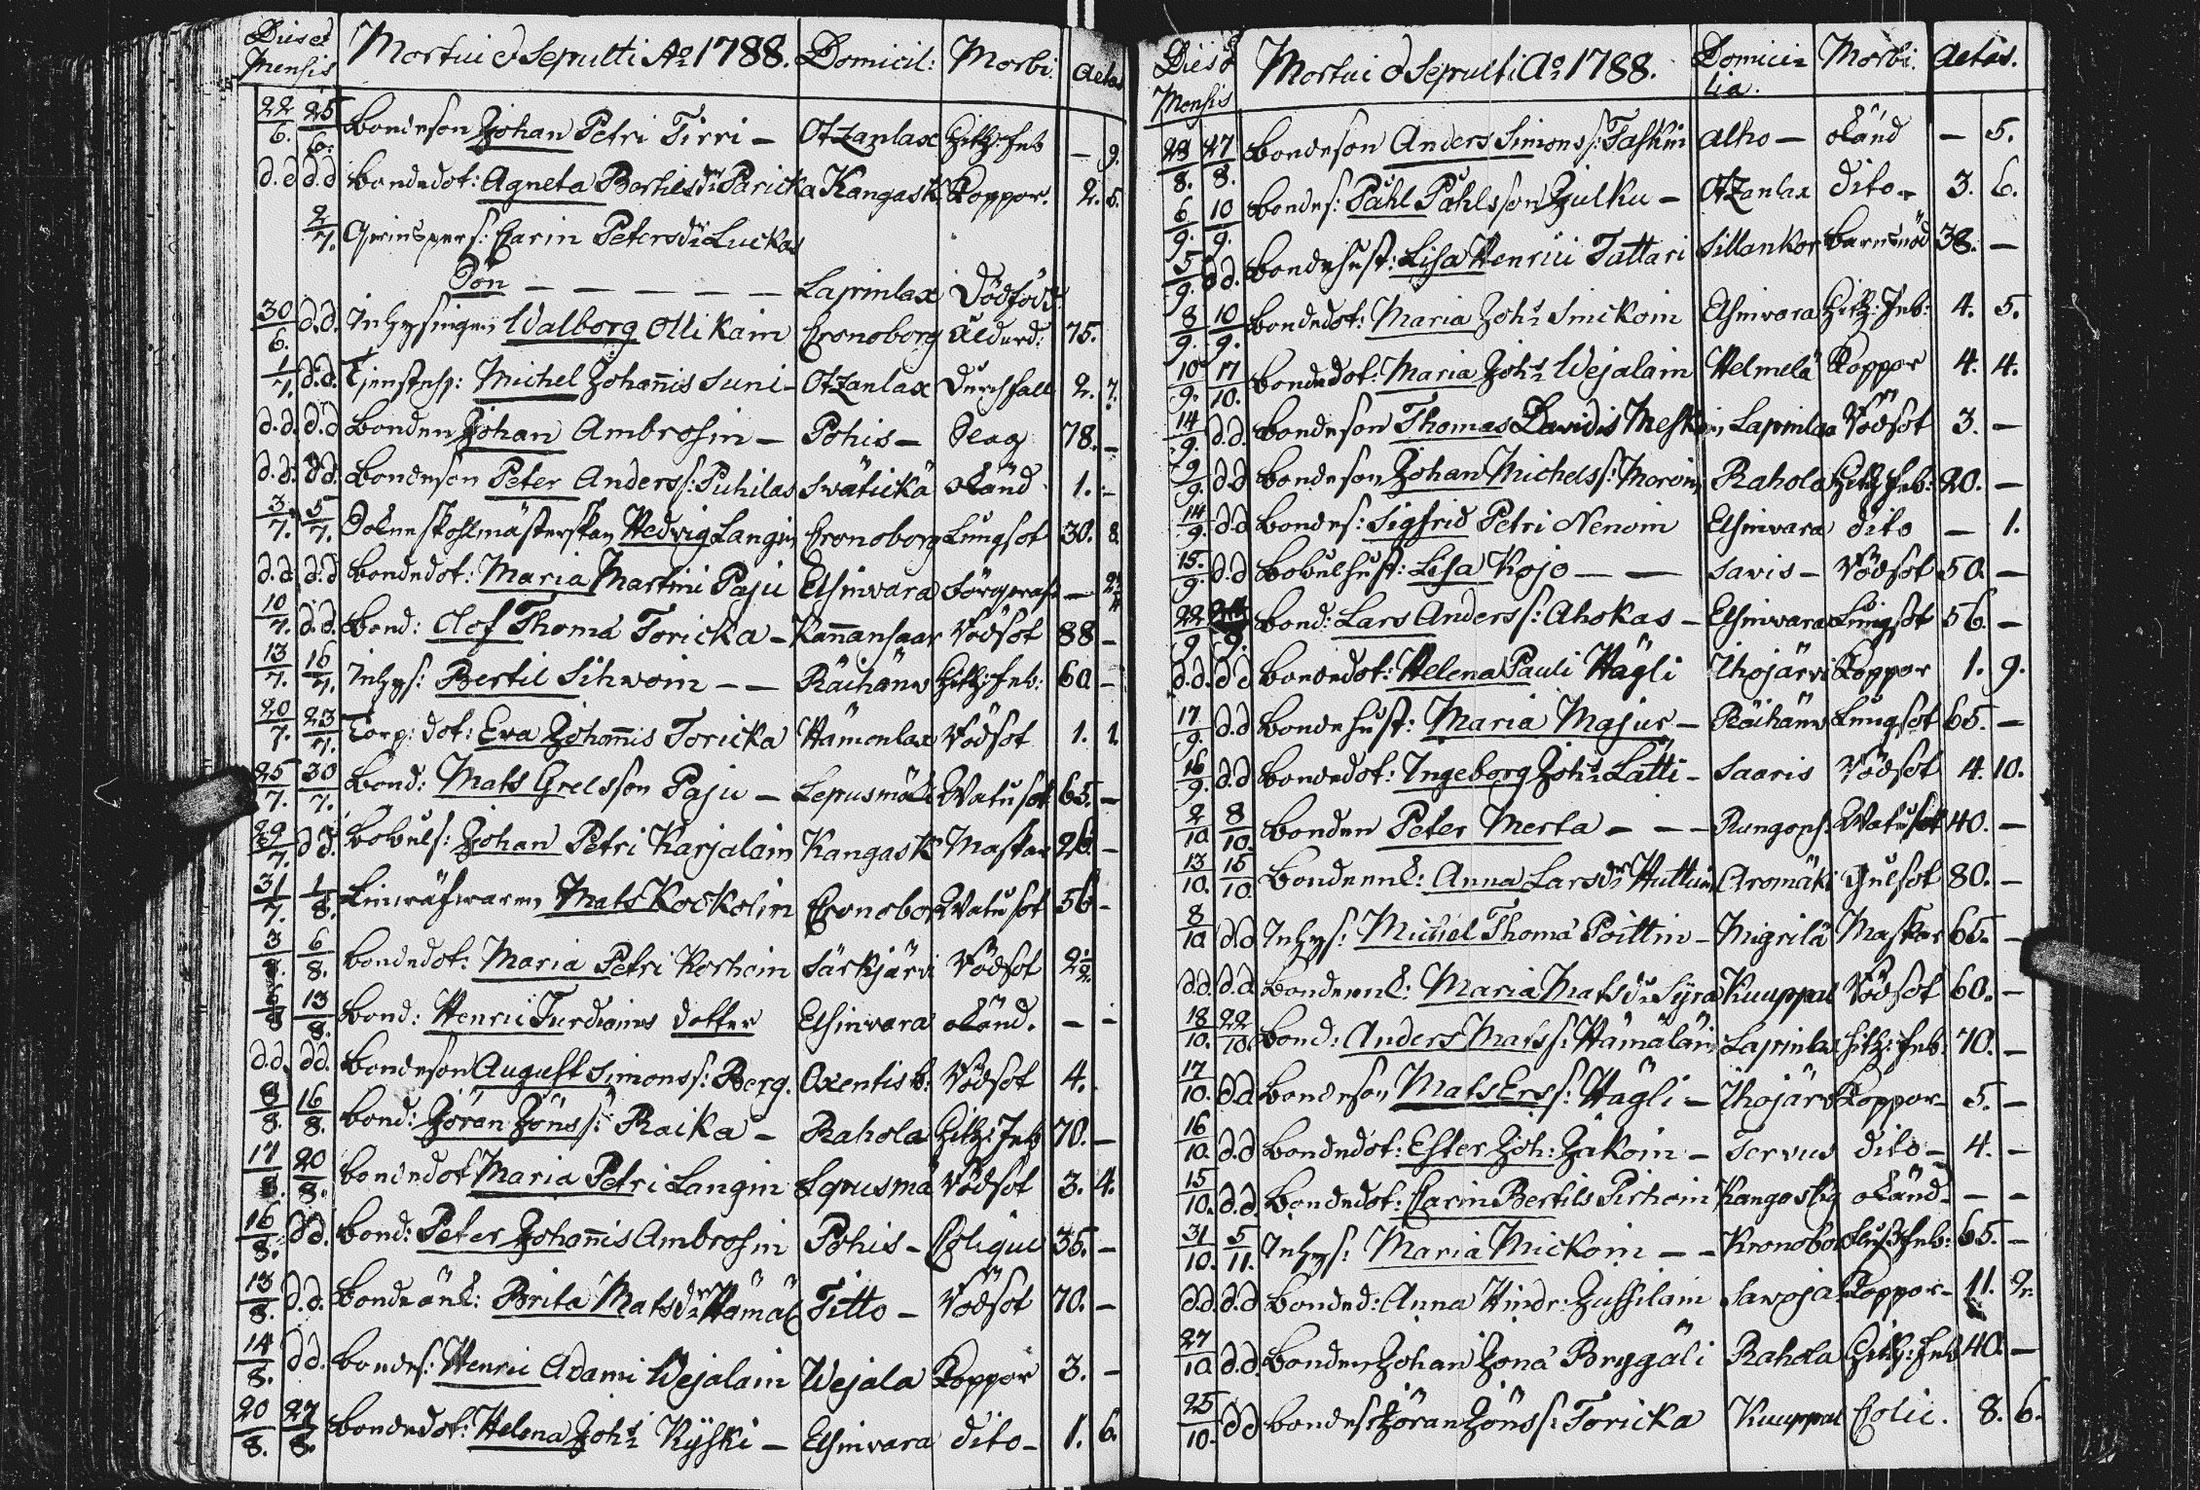 Dies et Mensis Mortui & Sepulti Ao 1788. Domicil: Morbi: Aetas
22/6. 25/6. bondeson Johan Petri Tirri – Otzanlax Hitz: feb – 9.
d.d d.d bondedot: Agneta Bertils dr Paricka Kangask. Koppor. 2. 5.
2/7. Carin Peters dr Luckas
Son – – – – – Lapinlax Dödfödt
30/6. d.d. Inhysingen Walborg Ollikain Cronoborg Ålderd: 75.
1/7. d.d. Michel Johannis Suni – Otzanlax Durchfall 2. 7.
d.d. d.d bonden Johan Ambrosin – Pohis – 78. –
d.d. d.d. bondeson Peter Anderss: Puhilas Svätickä okänd 1. –
3/7. 5/7. Hedvig Langin Cronoborg Lungsot 30. 8.
d.d. d.d bondedot: Maria Martini Paju Elsinvara –
10/7. d.d. bond: Olof Thomæ Toricka – Kannansaar Vödsot 88 –
13/7. 16/7. Inhys: Bertil Sihwoin – – Räihänw Hitz: feb: 60. –
20/7. 23/7. Torp: dot: Eva Johannis Toricka Hämenlax Vödsot 1. 1.
25/7. 30/7. bond: Mats Grelsson Paju – Lepusmäki Watusot 65. –
29/7. d.d. bobuls: Johan Petri Karjalain Kangask Maskar 26. –
31/7. 1/8. Mats Kockolin Cronobor Watusot 56 –
3/8. 6/8. bondedot: Maria Petri Korhoin Särkjärvi Vödsot 2 1/2.
6/8 13/8. bond: Henric Turdiains dotter Elsinvara okänd. – –
d.d. d.d. bondeson August Simonss: Berg. Oxentis b: Vödsot 4.
8/8. 16/8. bond: Jöran Jönss: Raika – Rahola Hitz: feb 70. –
17/8. 20/8. bondedot Maria Petri Langin Lepusmä Vödsot 3. 4.
16/8. d.d. bond: Peter Johannis Ambrosin Pohis – Colique 35. –
13/8. d.d. bondeänk: Brita Mats dr Hämäl Titto – Vödsot 70. –
14/8. d.d. bondes: Henric Adami Wejalain Wejala Koppor 3. –
20/8. 27/8. bondedot: Helena Johs Kyski – Elsinvara dito – 1. 6.
Dies & Mensis Mortui & Sepulti Ao 1788. Domicilia. Morbi. Aetas.
24/8. 27/8. bondeson Anders Simons s: Taskin Alho – okänd – 5.
6/9. 10/9. bondes: Påhl Påhlsson Julku – Otzanlax dito – 3. 6.
5/9. d.d. bondehust: Lisa Henrici Tattari Sillankor barnsnöd 38. –
8/9. 10/9. bondedot: Maria Johs Sinckoin Elsinvara Hitz: feb: 4. 5.
10/9. 17/10. bondedot: Maria Johs Wejalain Helmelä Koppor 4. 4.
14/9. d.d. bondeson Thomas Davids Meskin Lapinlax Vödsot 3. –
9/9. d.d bondeson Johan Michelss: Moroin Rahola Hitz feb: 20. –
14/9. d.d bondes: Sigfrid Petri Nenoin Elsinvara dito – 1.
15/9. d.d bobulhust: Lisa Kojo – – Savis – Vödsot 50. –
22/9 bond: Lars Anderss: Ahokas – Elsinvara Lungsot 56. –
d.d. d.d bondedot: Helena Pauli Hägli Ihojärvi Koppor 1. 9.
17/9. d.d bondehust: Maria Majur – Räihänw Lungsot 65. –
16/9. d.d bondedot: Ingeborg Johs Lätti – Saaris Vödsot 4. 10.
2/10 8/10. bonden Peter Merta – – – Rungops: Watusot 40. –
13/10. 15/10. bondeenk: Anna Lars dr Huttuin Aromäki Gulsot 80. –
8/10 d.d Inhys: Michel Thomæ Poittin – Migrilä Maskar 65. –
d.d. d.d. bondeenk: Maria Mats dr Syra Kuuppal Vödsot 60. –
18/10. 22/10. bond: Anders Matss: Hämäläin Lapinlax Hitz: feb: 70. –
17/10. d.d bondeson Mats Erss: Hägli – Ihojärv Koppor – 5. –
16/10. d.d bondedot: Ester Joh: Jäkoin – Tervus dito – 4. –
15/10. d.d. bondedot: Carin Bertils Pirhoin Kangaskyl okänd – – –
31/10. 5/11. Inhys: Maria Mickoin – – Kronobor feb: 65. –
d.d. d.d bonded: Anna Hindr: Jussilain Savoja: Koppor – 11. 2.
27/10 d.d. bonden Johan Jonæ Brygäli Rahola Hitz: feb 40. –
25/10. d.d bondes: Jöran Jönss: Toricka Kuuppal Colic. 8. 6.